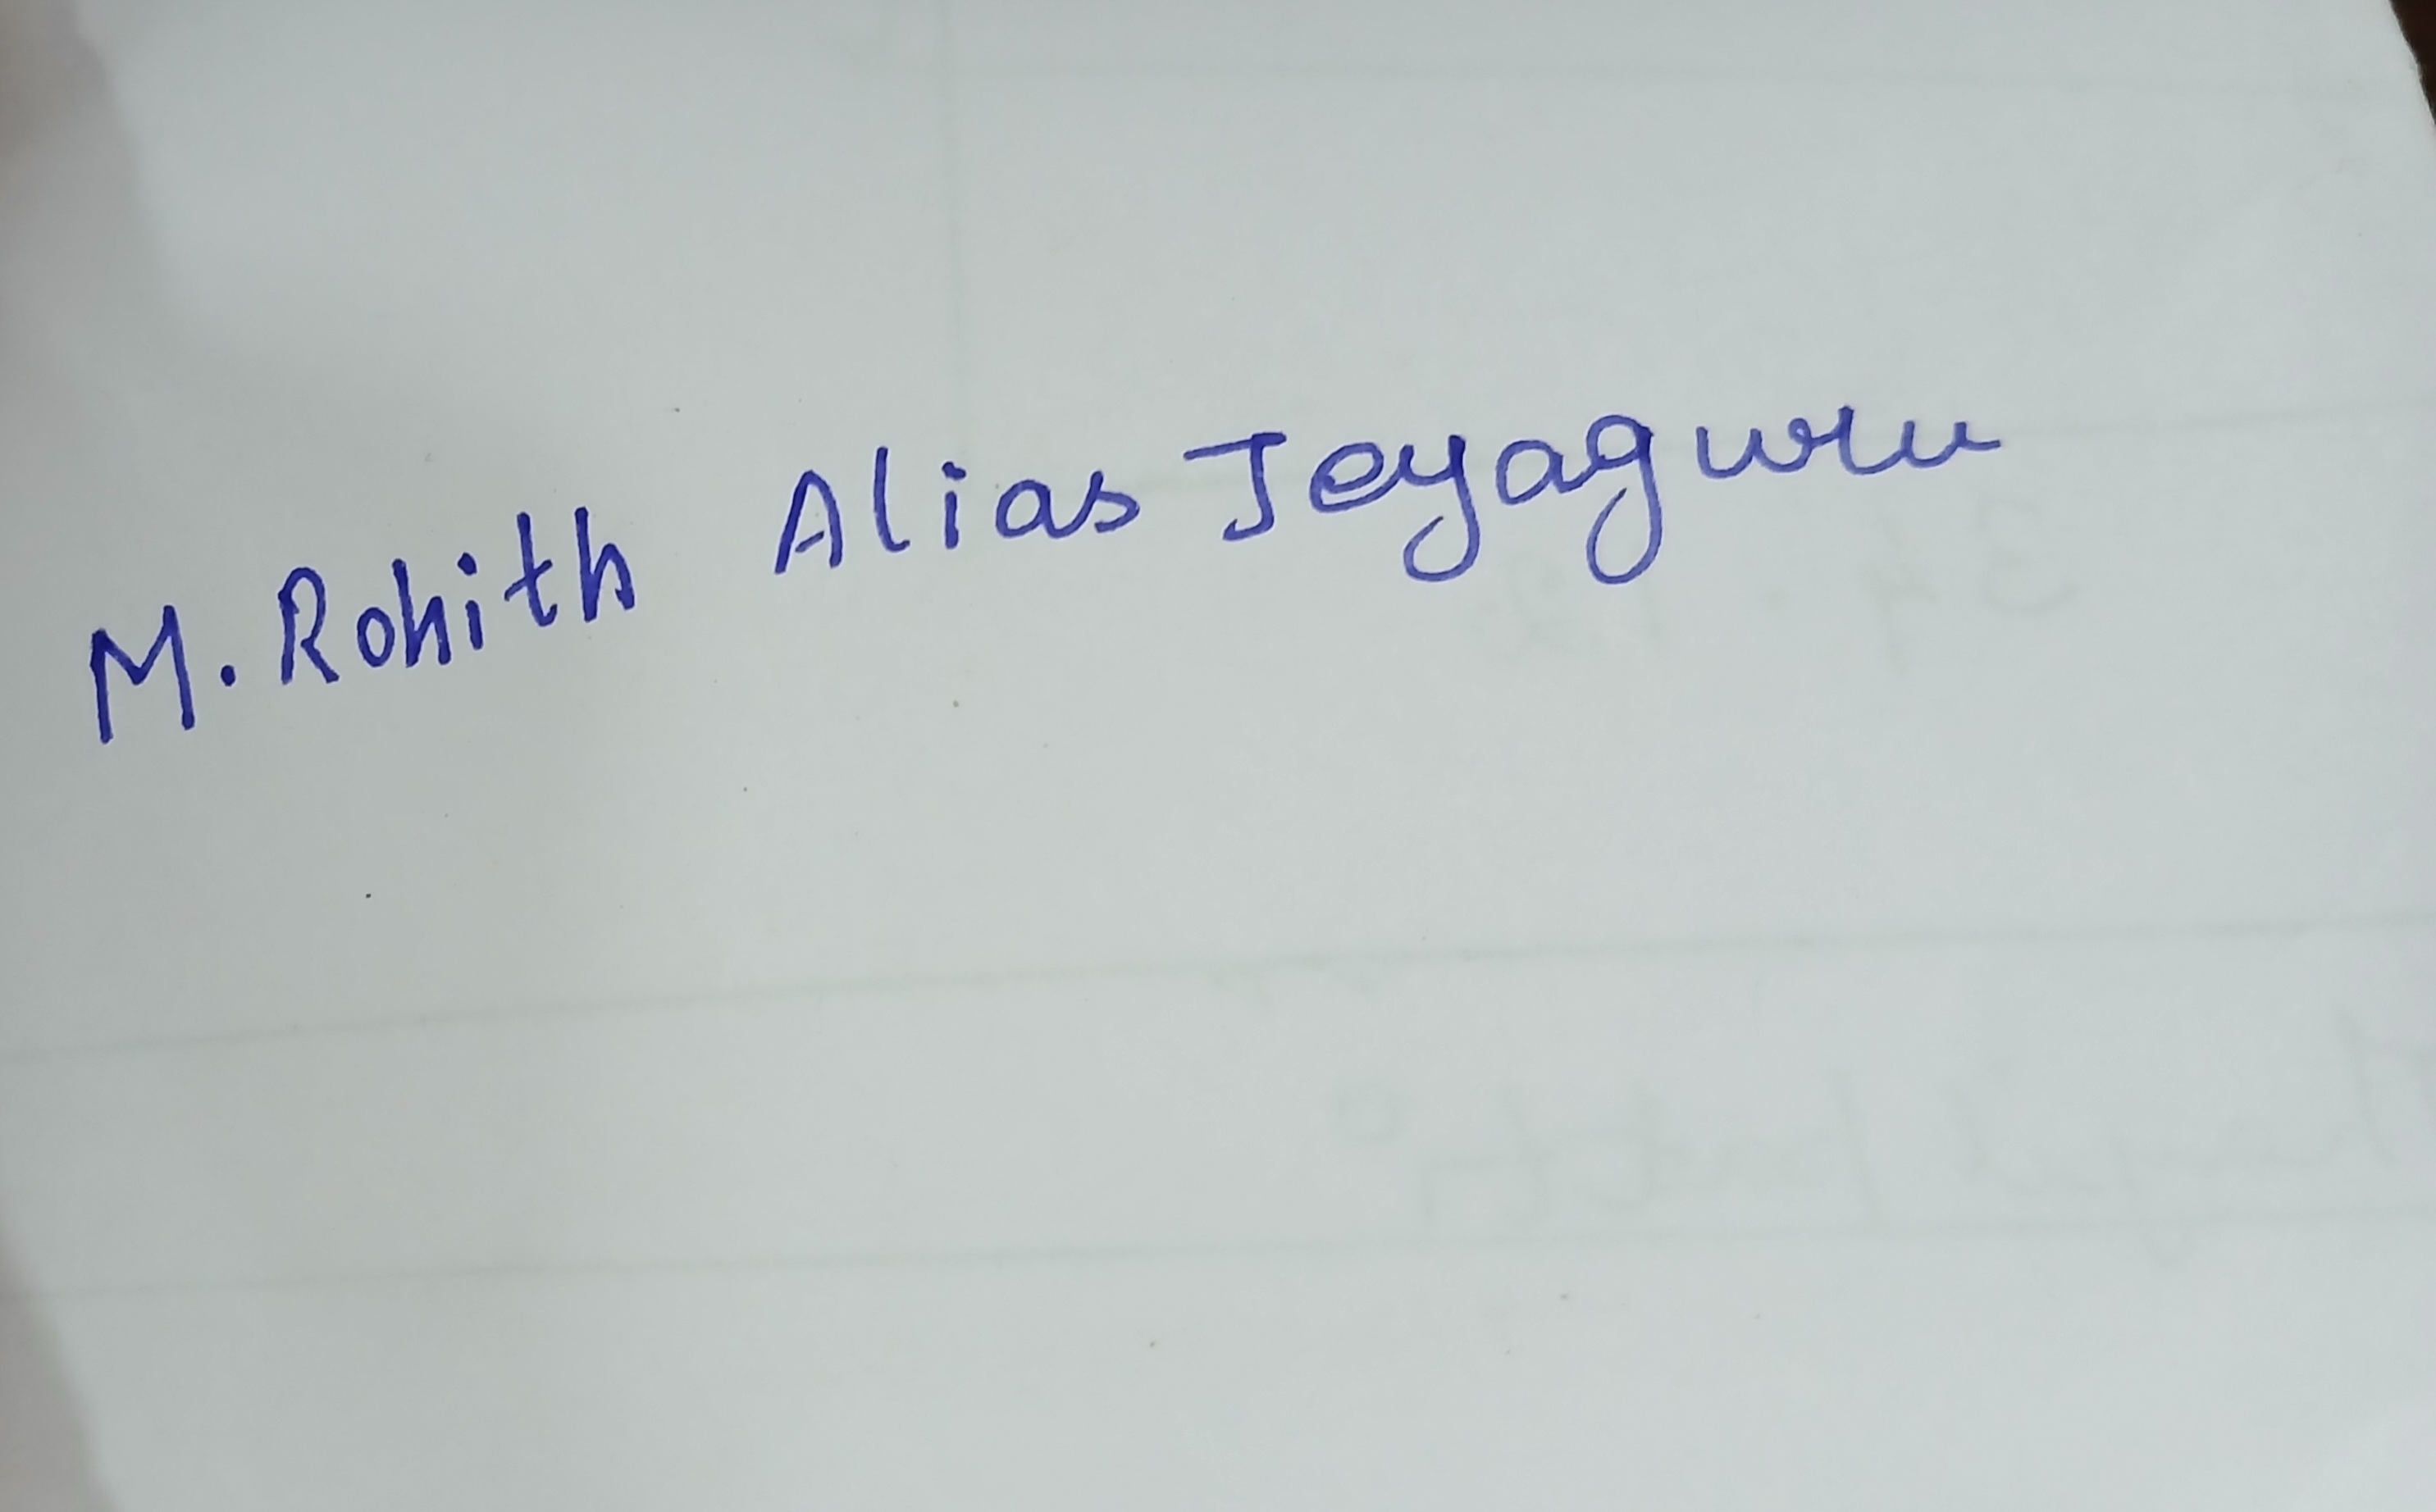 M. Rohith Alias Jeyaguru